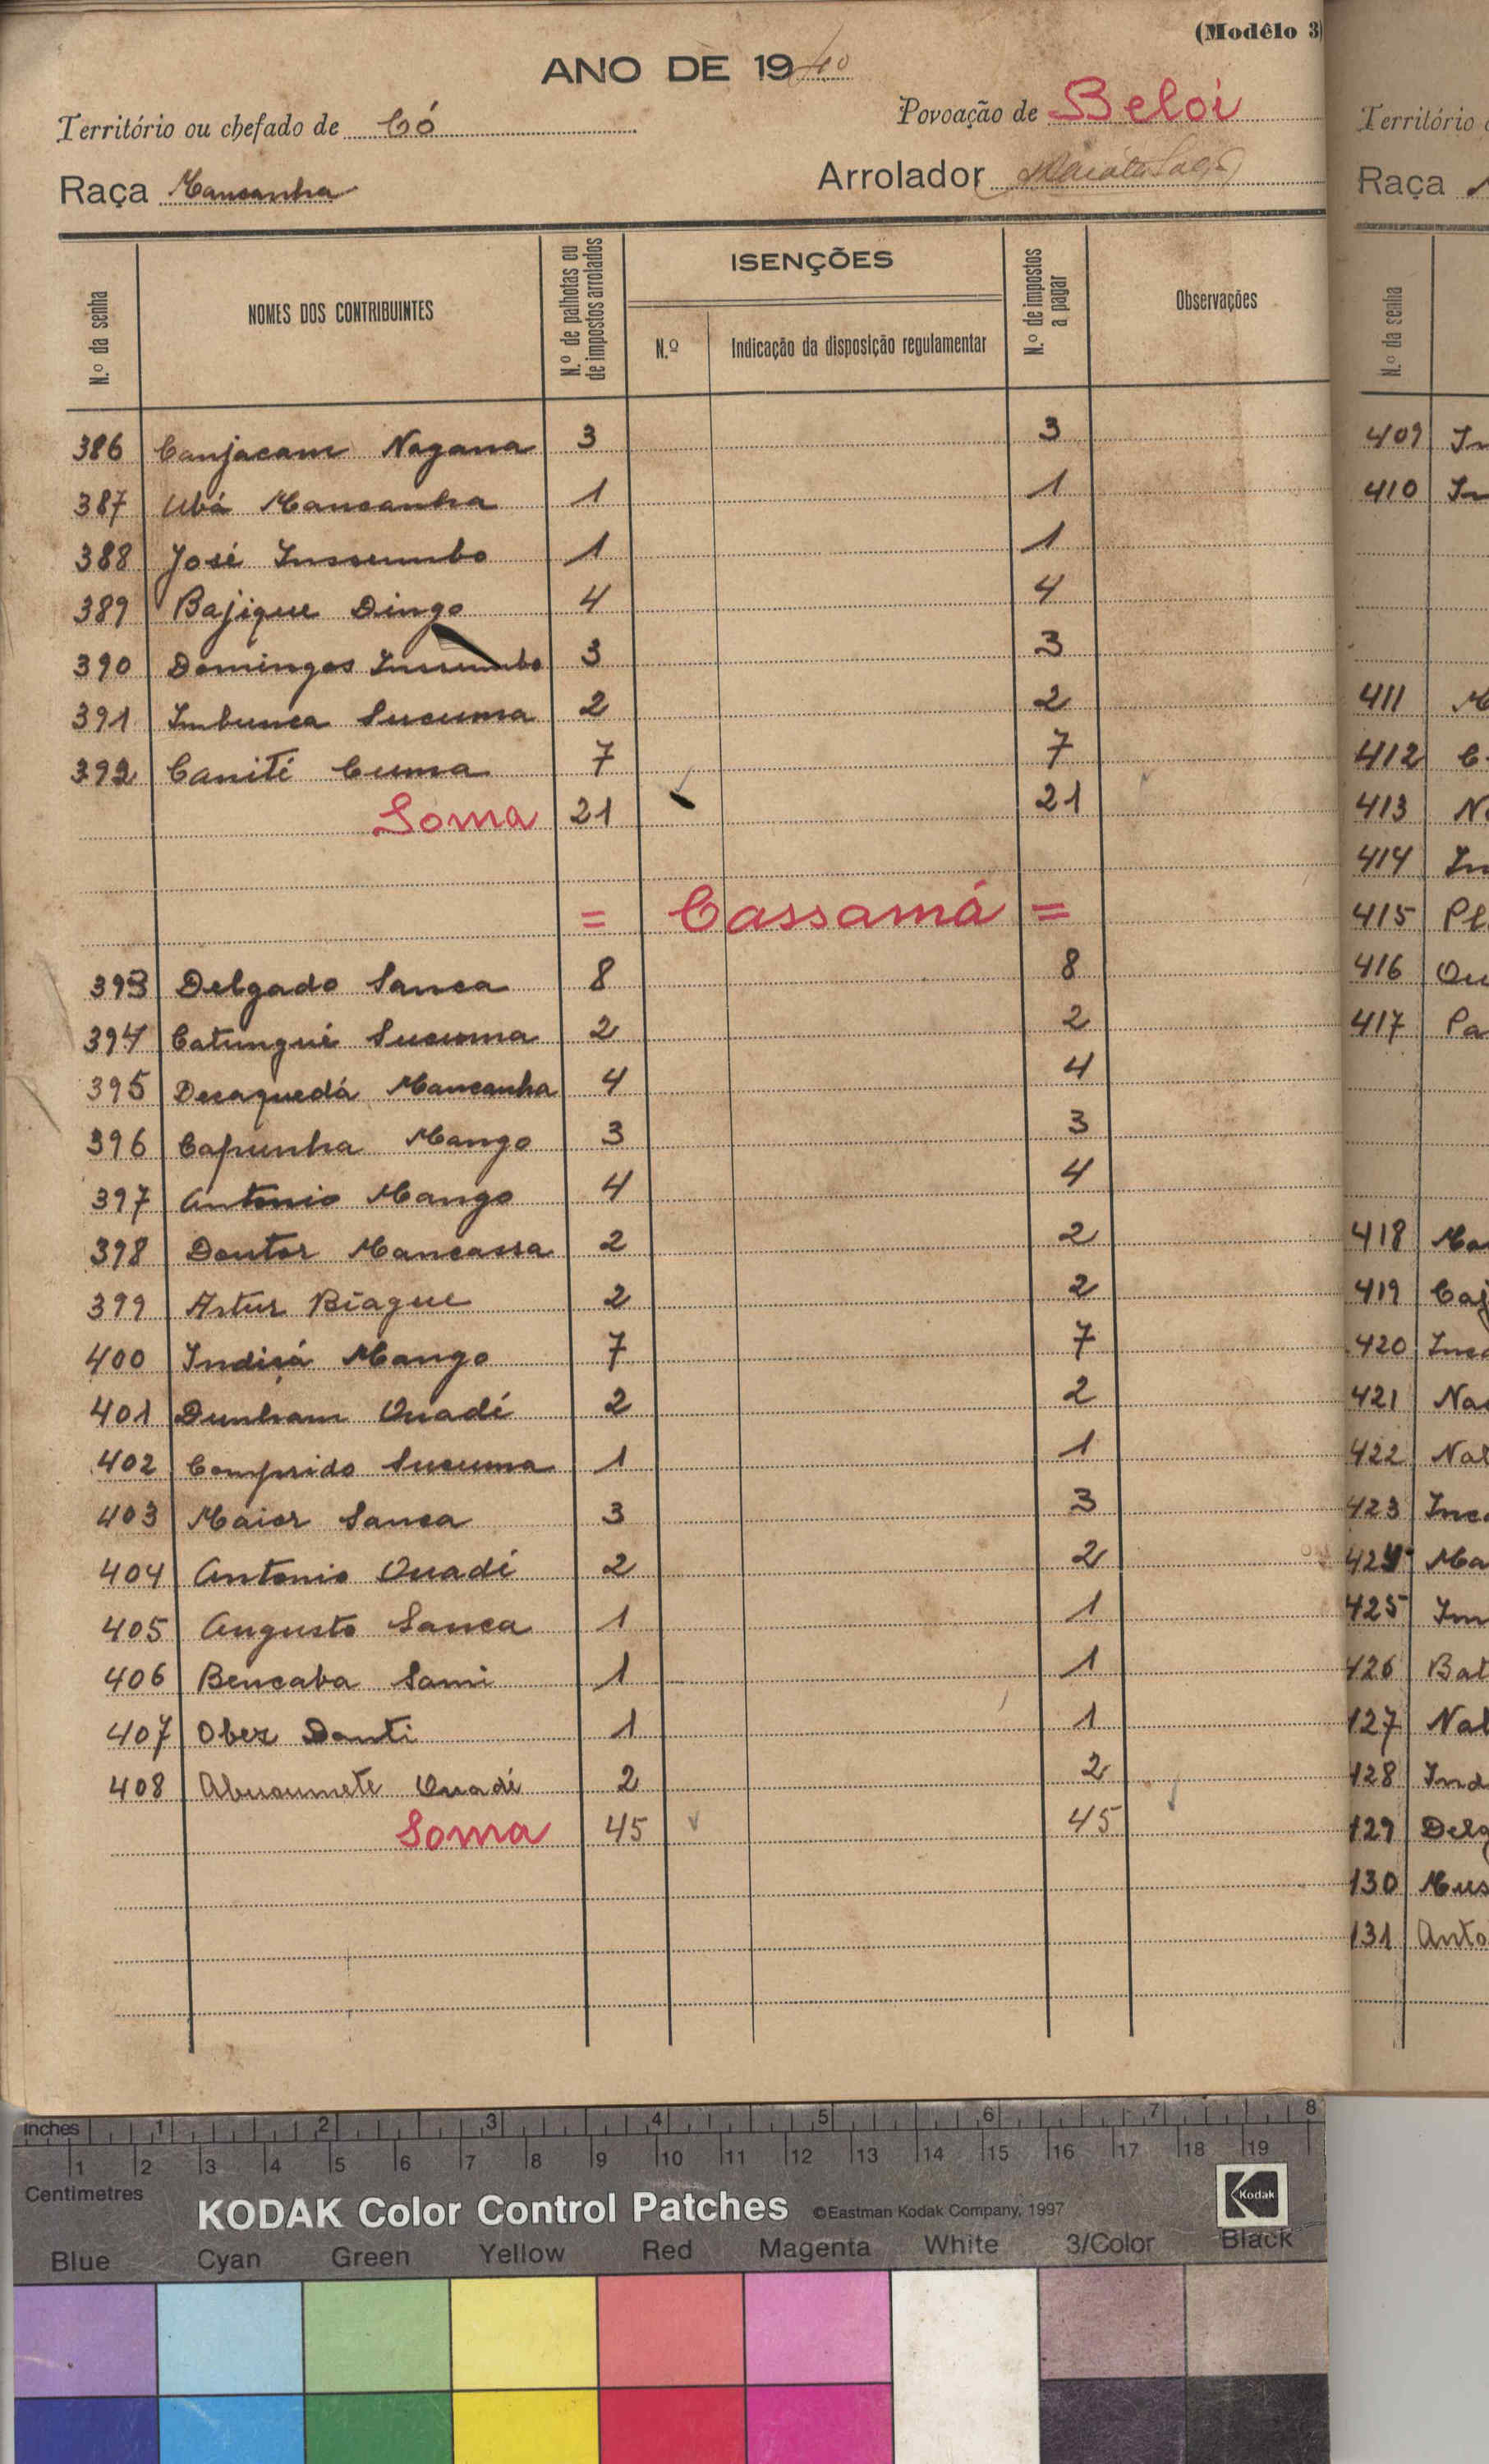 (Modêlo 3)
ANO DE 1940
Território ou chefado de Có
Povoação de Beloi
Raça Mancanha
Arrolador
N.º da senha
NOMES DOS CONTRIBUINTES
N.º de palhotas ou de impostos arrolados
ISENÇÕES
N.º
Indicação da disposição regulamentar
N.º de impostos a pagar
Observações
386 Canjacam Nagana 3 3
387 Ubá Mancanha 1 1
388 José Inssumbo 1 1
389 Bajique Dingo 4 4
390 Domingos Inssumbo 3 3
391 Imbunca Sucuma 2 2
392 Canité Cuma 7 7
Soma 21 21
= Cassamá =
393 Delgado Sanca 8 8
394 Catungué Sucuma 2 2
395 Decaquedá Mancanha 4 4
396 Capunha Mango 3 3
397 Antonio Mango 4 4
398 Doutor Mancassa 2 2
399 Artur Biague 2 2
400 Indirá Mango 7 7
401 Dunham Ouadé 2 2
402 Comprido Sucuma 1 1
403 Maior Sanca 3 3
404 Antonio Ouadé 2 2
405 Augusto Sanca 1 1
406 Bencaba Sami 1 1
407 Ober Donti 1 1
408 Abucumete Ouadé 2 2
Soma 45 45
Território
Raça
N.º da senha
409 In
410 In
411 M
412 C
413 N
414 In
415 Pl
416 Ou
417 Pa
418 Ma
419 Caj
420 Inc
421 Na
422 Nal
423 Inc
424 Ma
425 Im
426 Bat
127 Nal
128 Ind
129 Delg
130 Mus
131 Anto
Inches 1 2 3 4 5 6 7 8
1 2 3 4 5 6 7 8 9 10 11 12 13 14 15 16 17 18 19
Centimetres
KODAK Color Control Patches ©Eastman Kodak Company, 1997 Kodak
Blue Cyan Green Yellow Red Magenta White 3/Color Black